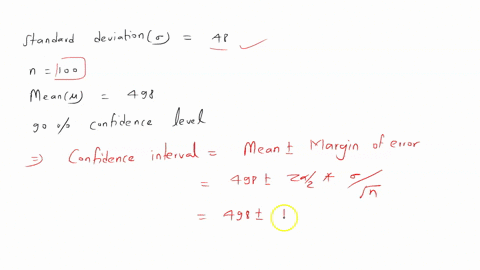 Standard deviation(σ) = 48
n = 100
Mean(μ) = 498
90 % confidence level
⇒ Confidence interval = Mean ± Margin of error
= 498 ± Zα/2 * σ/√n
= 498 ± 1